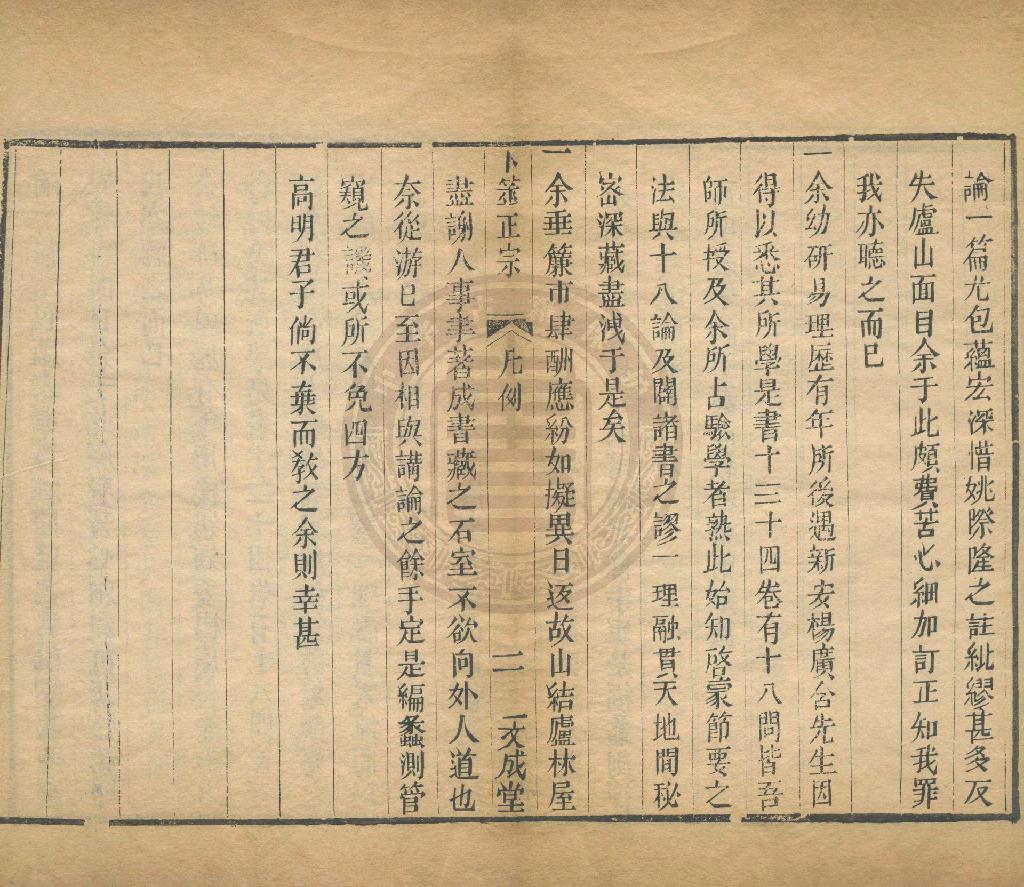 論一篇尤包蘊宏深惜姚際隆之註紕繆甚多反
失廬山面目余于此頗費苦心細加訂正知我罪
我亦聽之而已
一余幼研易理歷有年所後遇新安楊廣含先生因
得以悉其所學是書十三十四卷有十八問皆吾
師所授及余所占驗學者熟此始知啓蒙節要之
法與十八論及闢諸書之謬一理融貫天地間秘
宻深藏盡洩于是矣
一余垂簾市肆酬應紛如擬異日返故山結廬林屋
卜筮正宗 凡例 二 文成堂
盡謝人事耑著成書藏之石室不欲向外人道也
奈從游已至因相與講論之餘手定是編蠡測管
窺之譏或所不免四方
高明君子倘不棄而敎之余則幸甚